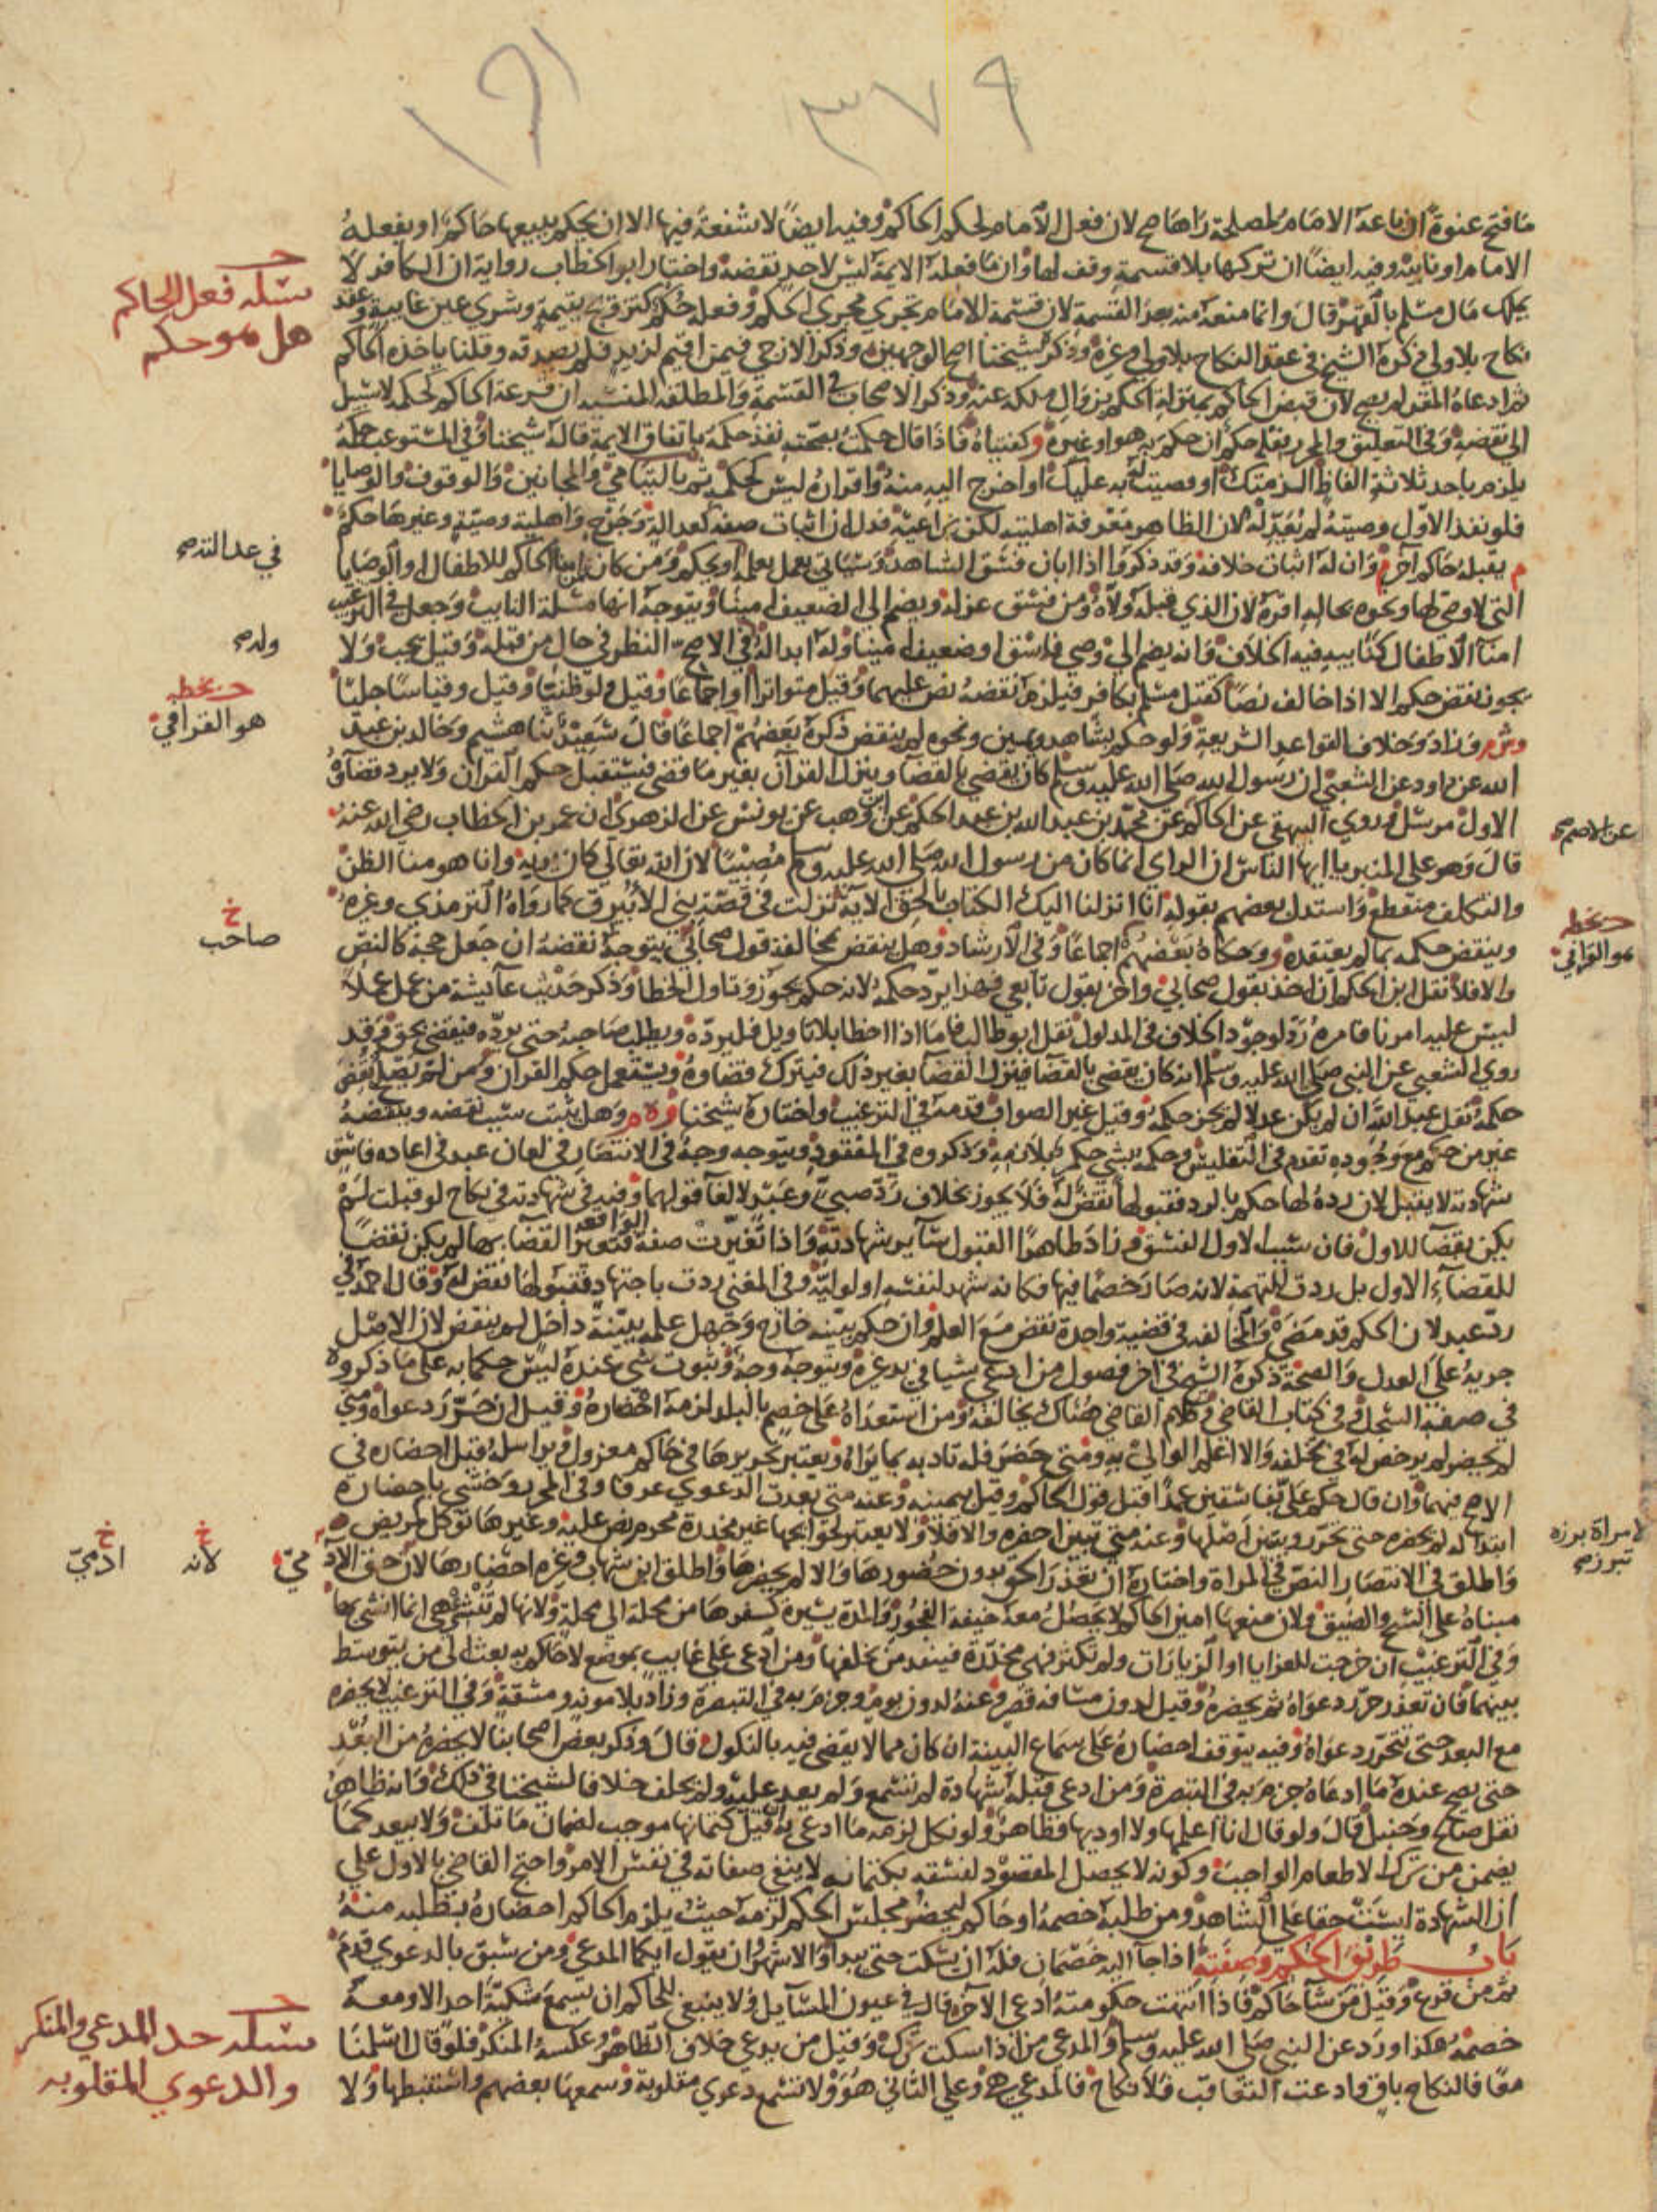 ١٩١
٣٧٩
ما فتح عنوة ان باعه الامام لمصلحة رآها صح لان فعل الامام كحكم الحاكم وفيه ايضًا لا شفعة فيها الا ان يحكم ببيعها حاكم او يفعله
الامام او نايبه وفيه ايضًا ان تركها بلا قسمة وقف لها وان ما فعله الايمة ليس لاحد نقضه واختار ابو الخطاب رواية ان الكافر لا
يملك مال مسلم بالقهر قال وانما منعه منه بعد القسمة لان قسمة الامام تجري مجرى الحكم وفعله حكم كتزويج يتيمة وشرى عين غايبة وعقد
نكاح بلا ولي ذكره الشيخ في عقد النكاح بلا ولي وغيره وذكره شيخنا اصح الوجهين وذكر الازجي فيمن اقر لزيد فلم يصدقه وقلنا ياخذه الحاكم
ثم ادعاه المقر لم يصح لان قبض الحاكم بمنزلة الحكم بزوال ملكه عنه وذكر الاصحاب في القسمة والمطلقة المنسية ان قرعة الحاكم كحكمه لا سبيل
الى نقضه وفي التعليق والمحرر فعله حكم ان حكم به هو او غيره وكفتياه فاذا قال حكمت بصحته نفذ حكمه باتفاق الايمة قاله شيخنا وفي المستوعب حكمه
يلزم باحد ثلاثة الفاظ الزمتك او قضيت له به عليك او اخرج اليه منه واقراره ليس كحكم
فلو نفذ الاول وصيته لم يغيره لان الظاهر معرفة اهليته لكن يراعيه فدل ان اثبات صفة كعدالة وجرح واهلية وصية وغيرها حكم
م يقبله حاكم آخر وان له اثبات خلافه وقد ذكروا اذا ابان فسق الشاهد
التي لا وصي لها ونحوه بحاله اقره لان الذي قبله ولاه ومن فسق عزله ويضم الى الضعيف امينا ويتوجه انها مسئلة النايب وجعل في الترغيب
امناء الاطفال كنايبه فيه الخلاف وانه يضم الى وصي فاسق او ضعيف امينا وله ابداله في الاصح النظر في حال من قبله وقيل يجب ولا
يجوز نقض حكم الا اذا خالف نصًا كقتل مسلم بكافر فيلزم نقضه نص عليهما وقيل متواترا او اجماعًا وقيل ولو ظنيًا وقيل وقياسًا جليًا
وش وزاد وخلاف القواعد الشرعية ولو حكم بشاهد ويمين ونحوه لم ينقض ذكره بعضهم اجماعًا قال سعيد ثنا هشيم وخالد بن عبد
الله عن داود عن الشعبي ان رسول الله صلى الله عليه وسلم كان يقضي بالقضا وينزل القرآن بغير ما قضى فيستقبل حكم القرآن ولا يرد قضاه
الاول مرسل وروى البيهقي عن الحاكم عن محمد بن عبد الله بن عبد الحكم عن ابن وهب عن يونس عن الزهري ان عمر بن الخطاب رضي الله عنه
قال وهو على المنبر يا ايها الناس ان الراي انما كان من رسول الله صلى الله عليه وسلم مصيبًا لان الله تعالى كان يريه وانما هو منا الظن
والتكلف منقطع واستدل بعضهم بقوله انا انزلنا اليك الكتاب بالحق الآية نزلت في قصة بني الابيرق كما رواه الترمذي وغيره
وينقض حكمه بما لم يعتقده ووحكاه بعضهم اجماعًا وفي الارشاد وهل ينقض بمخالفة قول صحابي يتوجه نقضه ان جعل حجة كالنص
والا فلا نقل ابن الحكم ان اخذ بقول صحابي واخر بقول تابعي فهذا يرد حكمه لانه حكم بجور وتاول الخطا وذكر حديث عايشة من عمل عملًا
ليس عليه امرنا فامره رد لوجود الخلاف في المدلول نقل ابو طالب فاما اذا اخطا بلا تاويل فليرده ويطلب صاحبه حتى يرده فيقضي بحق وقد
روى الشعبي عن النبي صلى الله عليه وسلم انه كان يقضي بالقضا فينزل القضا بغير ذلك فيترك قضاوه ويستعمل حكم القرآن ومن لم يصلح نقض
حكمه نقل عبد الله ان لم يكن عدلا لم يجز حكمه وقيل غير الصواب قدمه في الترغيب واختاره شيخنا وه م وهل يثبت سبب نقضه وينقضه
غير من حكم مع وجوده تقدم في التفليس وحكمه بشي حكم بلازمه وذكروه في المفقود ويتوجه وجه في الانتصار في لعان عبد في اعادة فاسق
شهادته لا يقبل لان رده لها حكم بالرد فقبولها نقض له فلا يجوز بخلاف رد صبي وعبد لالغا قولهما وفيه في شهادته في نكاح لو قبلت لم
يكن نقضا للاول فان سبب الاول الفسق وزاد ظاهرًا لقبول ساير شهاداته واذا تغيرت صفة الواقعة فتغير القضا بها لم يكن نقضًا
للقضاء الاول بل ردت للتهمة لانه صار خصما فيها فكانه شهد لنفسه او لوليه وفي المغني ردت باجتهاد فقبولها نقض له وقال احمد في
رد عبد لان الحكم قد مضى والمخالفة في قضية واحدة نقض مع العلم وان حكم ببينة خارج وجهل علمه ببينة داخل لم ينقض لان الاصل
جريه على العدل والصحة ذكره الشيخ في آخر فصول من ادعى شيا في يد غيره ويتوجه وجه وثبوت شي عنده ليس حكما به على ما ذكروه
في صفة السجل وفي كتاب القاضي وكلام القاضي هناك يخالفه ومن استعداه على خصم بالبلد لزمه احضاره وقيل ان حرر دعواه ومتى
لم يحضر لم يرخص له في تخلفه والا اعلم الوالي به ومتى حضر فله تاديبه بما يراه ويعتبر تحريرها في حاكم معزول ويراسله قبل احضاره في
الاصح فيهما وان قال حكم علي بفاسقين عمدًا قبل قول الحاكم وقيل بيمينه وعنه متى بعدت الدعوى عرفا وفي المحرر وخشي باحضاره
ابتذاله لم يحضره حتى تحرر ويتبين اصلها وعنه متى تبين احضره والا فلا ولا يعتبر لحوايجها غير مخدرة محرم نص عليه وغيرها توكل كمريض
واطلق في الانتصار النص في المراة واختاره ان تعذر الحق بدون حضورها والا لم يحضرها واطلق ابن شهاب وغيره احضارها لان حق الآد
مبناه على الشح والضيق ولان معها امين الحاكم لا يحصل معه خيفة الفجور والمدة يسيرة كسفرها من محلة الى محلة ولانها لم تنشئ هي انما انشئ بها
وفي الترغيب ان خرجت للعزايا او الزيارات ولم تكثر فهي مخدرة فينفذ من يحلفها ومن ادعى على غايب بموضع لا حاكم به بعث الى من يتوسط
بينهما فان تعذر حرر دعواه ثم يحضره وقيل لدون مسافة قصر وعنه لدون يوم وجزم به في التبصرة وزاد بلا مونة ومشقة وفي الترغيب لا يحضره
مع البعد حتى تتحرر دعواه وفيه يتوقف احضاره على سماع البينة ان كان مما لا يقضى فيه بالنكول قال وذكر بعض اصحابنا لا يحضره من البعد
حتى يصح عنده ما ادعاه جزم به في التبصرة ومن ادعى قبله شهادة لم تسمع ولم يعد عليه ولم يحلف خلافا لشيخنا في ذلك وانه ظاهر
نقل صالح وحنبل قال ولو قال انا اعلمها ولا اوديها فظاهر ولو نكل لزمه ما ادعى به ان قيل كتمانها موجب لضمان ما تلف ولا يبعد كما
يضمن من ترك الاطعام الواجب وكونه لا يحصل المقصود لفسقه بكتمانه لا ينفي ضمانه في نفس الامر واحتج القاضي بالاول على
ان الشهادة ليست حقا على الشاهد ومن طلبه خصمه او حاكم ليحضر مجلس الحكم لزمه حيث يلزم الحاكم احضاره بطلبه منه
باب طريق الحكم وصفته اذا جا اليه خصمان فله ان يسكت حتى يبدا والاشهر ان يقول ايكما المدعي ومن سبق بالدعوى قدم
ثم من قرع وقيل من شا حاكم فاذا انتهت حكومته ادعى الآخر قال في عيون المسايل ولا ينبغي للحاكم ان يسمع شكية احد الا ومعه
خصمه هكذا ورد عن النبي صلى الله عليه وسلم والمدعي من اذا سكت ترك وقيل من يدعي خلاف الظاهر وعكسه المنكر فلو قال اسلمنا
معًا فالنكاح باق وادعت التعاقب فلا نكاح فالمدعي هي وعلى الثاني هو ولا تسمع دعوى مقلوبة وسمعها بعضهم واستنبطها ولا
مسئلة فعل الحاكم
هل هو حكم
في عدالته صح
وله صح
حـ بخطه
هو القرافي
عن الاصم صح
خ
صاحب
حـ بخطه
هو القرافي
لامراة برزة
تبرز صح
مي
خ
لانه
خ
ادمي
مسئلة حد المدعي والمنكر
والدعوى المقلوبه